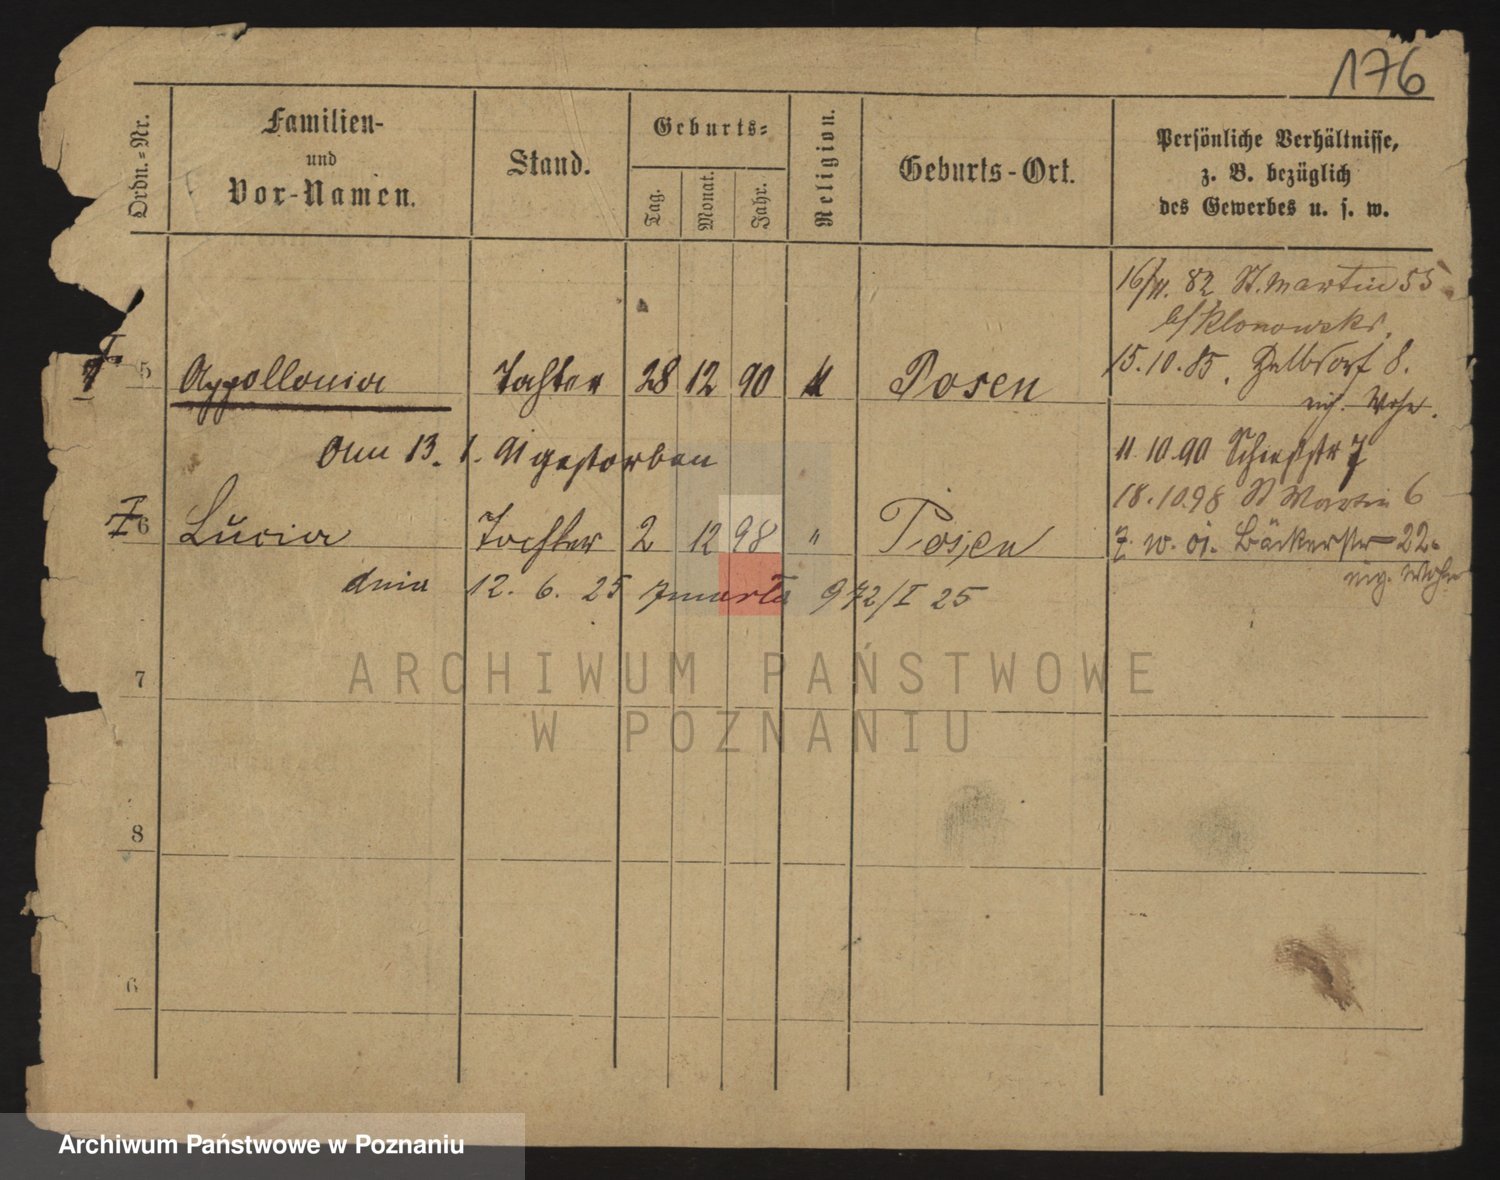 176
Ordn.-Nr.
Familien-
und
Vor-Namen.
Stand.
Geburts-
Tag.
Monat.
Jahr.
Religion.
Geburts-Ort.
Persönliche Verhältnisse,
z. B. bezüglich
des Gewerbes u. s. w.
16/11. 82 St. Martin 55
b/ Klonowski.
15.10.85. 8.
5 Appollonia Tochter 28 12 90 " Posen
Wohn.
am 13. 1. 91 gestorben
11.10.90 Schießstr 7
18.10.98 St Martin 6
6 Lucia Tochter 2 12 98 " Posen
7. 10. 01. Bäckerstr 22.
eig. Wohn
dnia 12. 6. 25 zmarła 972/I 25
7
8
ARCHIWUM PAŃSTWOWE
W POZNANIU
Archiwum Państwowe w Poznaniu